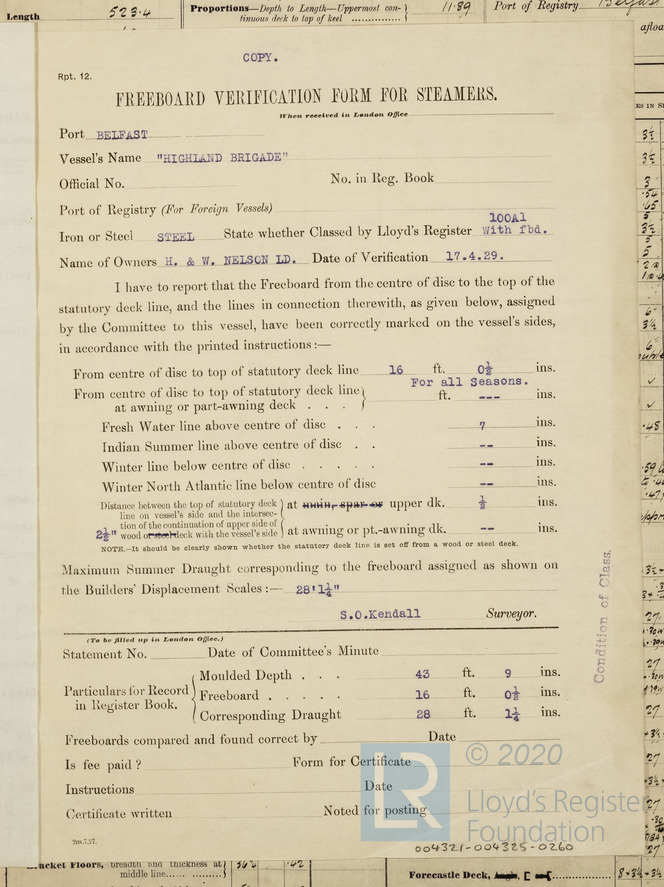 Length 523.4 Proportions—Depth to Length—Uppermost con-tinuous deck to top of keel 11.89 Port of Registry Belfast
COPY.
Rpt. 12.
FREEBOARD VERIFICATION FORM FOR STEAMERS.
When received in London Office
Port BELFAST
Vessel's Name "HIGHLAND BRIGADE"
Official No. No. in Reg. Book
Port of Registry (For Foreign Vessels)
100A1
Iron or Steel STEEL State whether Classed by Lloyd's Register With fbd.
Name of Owners H. & W. NELSON LD. Date of Verification 17.4.29.
I have to report that the Freeboard from the centre of disc to the top of the
statutory deck line, and the lines in connection therewith, as given below, assigned
by the Committee to this vessel, have been correctly marked on the vessel's sides,
in accordance with the printed instructions :—
From centre of disc to top of statutory deck line 16 ft. 0½ ins.
For all Seasons.
From centre of disc to top of statutory deck line
at awning or part-awning deck . . . ft. --- ins.
Fresh Water line above centre of disc . . . 7 ins.
Indian Summer line above centre of disc . . -- ins.
Winter line below centre of disc . . . . . -- ins.
Winter North Atlantic line below centre of disc -- ins.
Distance between the top of statutory deck
line on vessel's side and the intersec-
tion of the continuation of upper side of
2½" wood or steel deck with the vessel's side
at main, spar or upper dk. ½ ins.
at awning or pt.-awning dk. -- ins.
NOTE.—It should be clearly shown whether the statutory deck line is set off from a wood or steel deck.
Maximum Summer Draught corresponding to the freeboard assigned as shown on
the Builders' Displacement Scales :— 28'1¼"
S.O.Kendall Surveyor.
Condition of Class.
(To be filled up in London Office.)
Statement No. Date of Committee's Minute
Particulars for Record
in Register Book.
Moulded Depth . . . 43 ft. 9 ins.
Freeboard . . . . . 16 ft. 0½ ins.
Corresponding Draught 28 ft. 1¼ ins.
Freeboards compared and found correct by Date
Is fee paid ? Form for Certificate
Instructions Date
Certificate written Noted for posting
2m.7.57.
LR
© 2020
Lloyd's Register
Foundation
004321-004325-0260
Bracket Floors, breadth and thickness at middle line
Forecastle Deck,